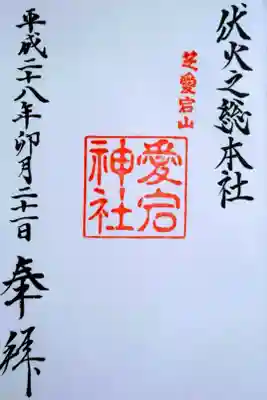 伏火之總本社
芝愛宕山
愛宕
神社
平成二十八年卯月二十一日
奉拝